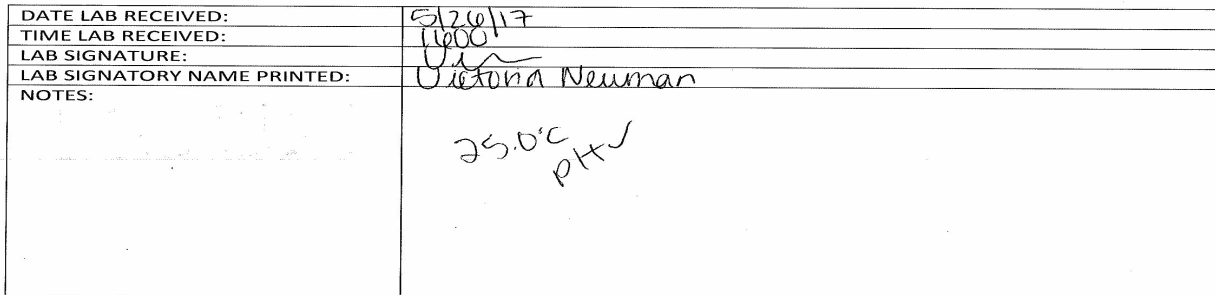 DATE LAB RECEIVED: 5/26/17
TIME LAB RECEIVED: 1600
LAB SIGNATURE:
LAB SIGNATORY NAME PRINTED: Victoria Neuman
NOTES:
25.0°C
pH✓